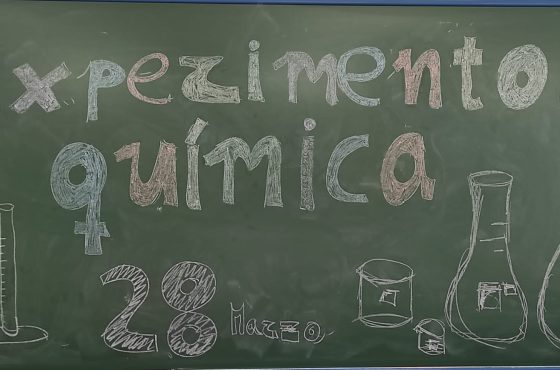 xperimento
química
28 Marzo